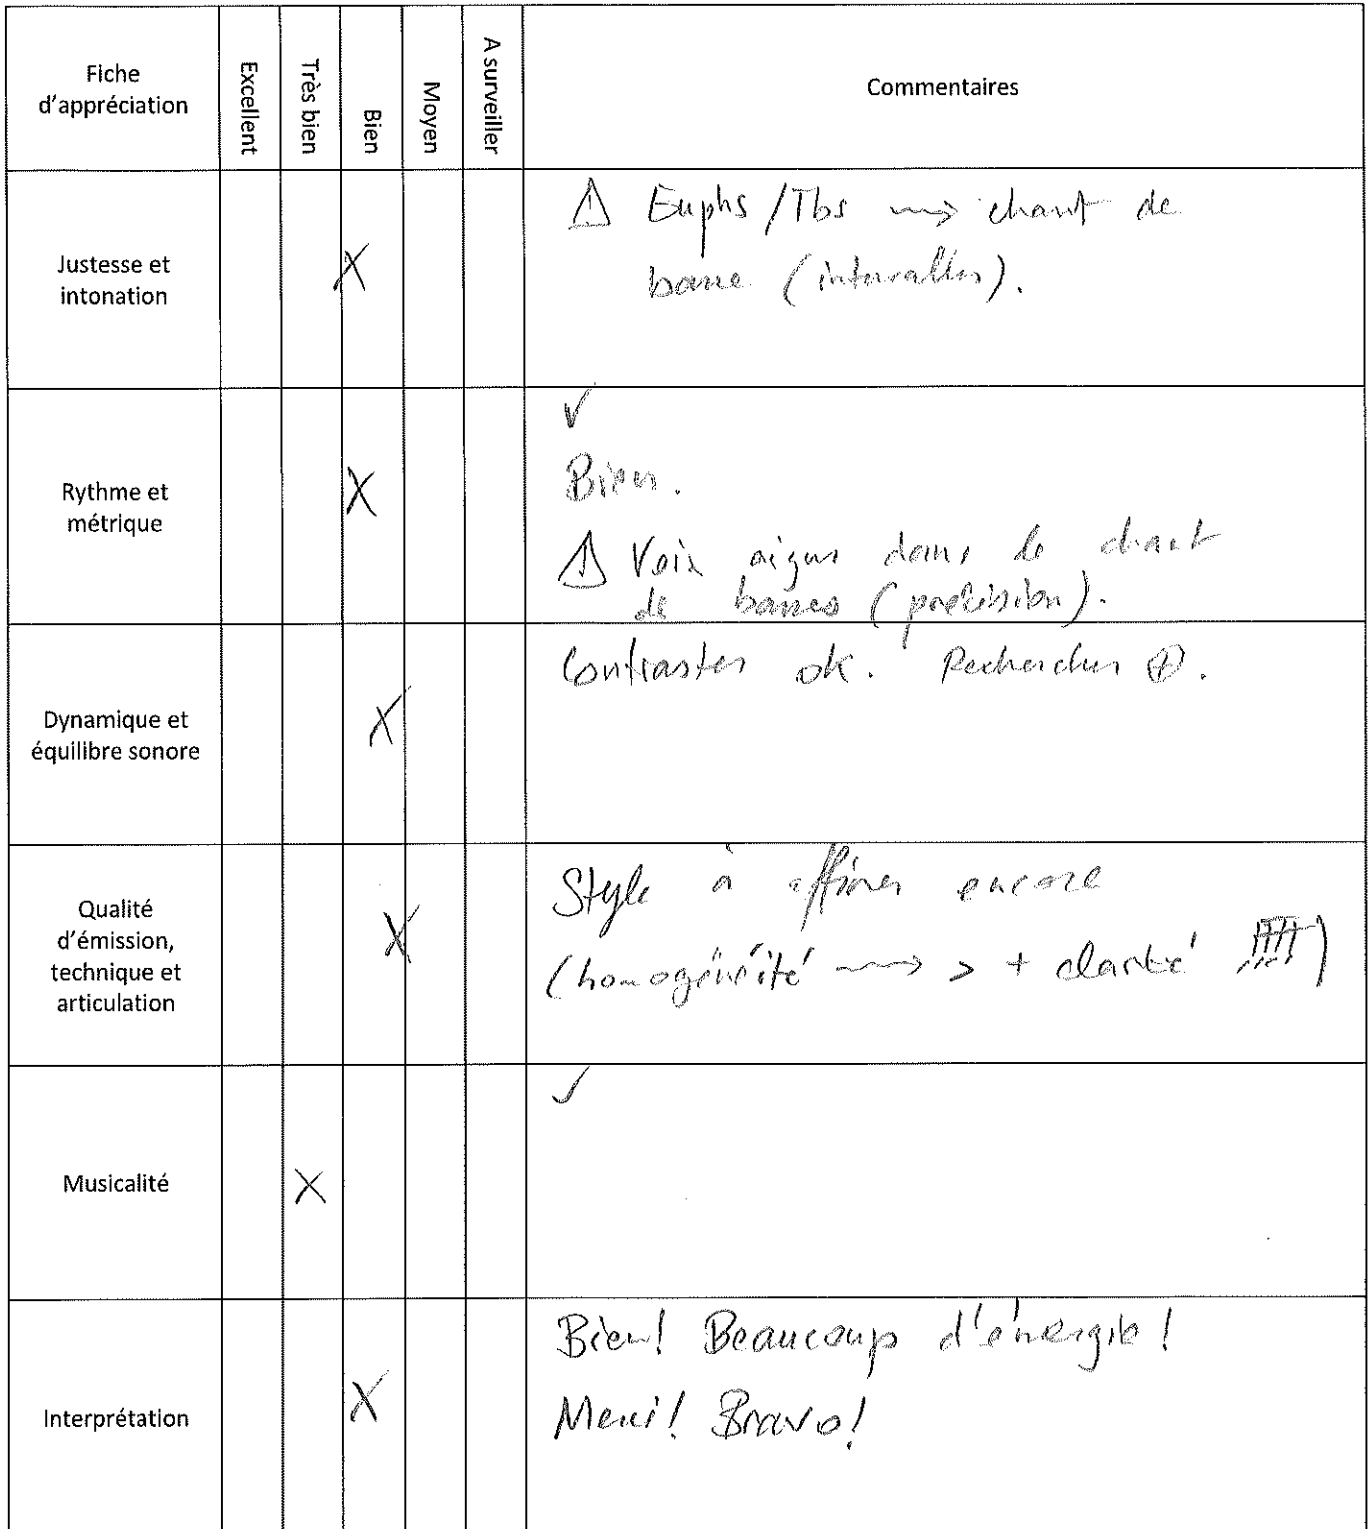 Fiche
d'appréciation
Excellent
Très bien
Bien
Moyen
A surveiller
Commentaires
Justesse et
intonation
X
⚠ Euphs / Tbs ⟿ chant de
basse (intervalles).
Rythme et
métrique
X
✓
Bien.
⚠ Voix aigus dans le chant
de basses (précision).
Dynamique et
équilibre sonore
X
Contrastes ok. Rechercher ⊕.
Qualité
d'émission,
technique et
articulation
X
Style à affiner encore
(homogénéité ⟿ > + clarté )
Musicalité
X
✓
Interprétation
X
Bien! Beaucoup d'énergie!
Merci! Bravo!